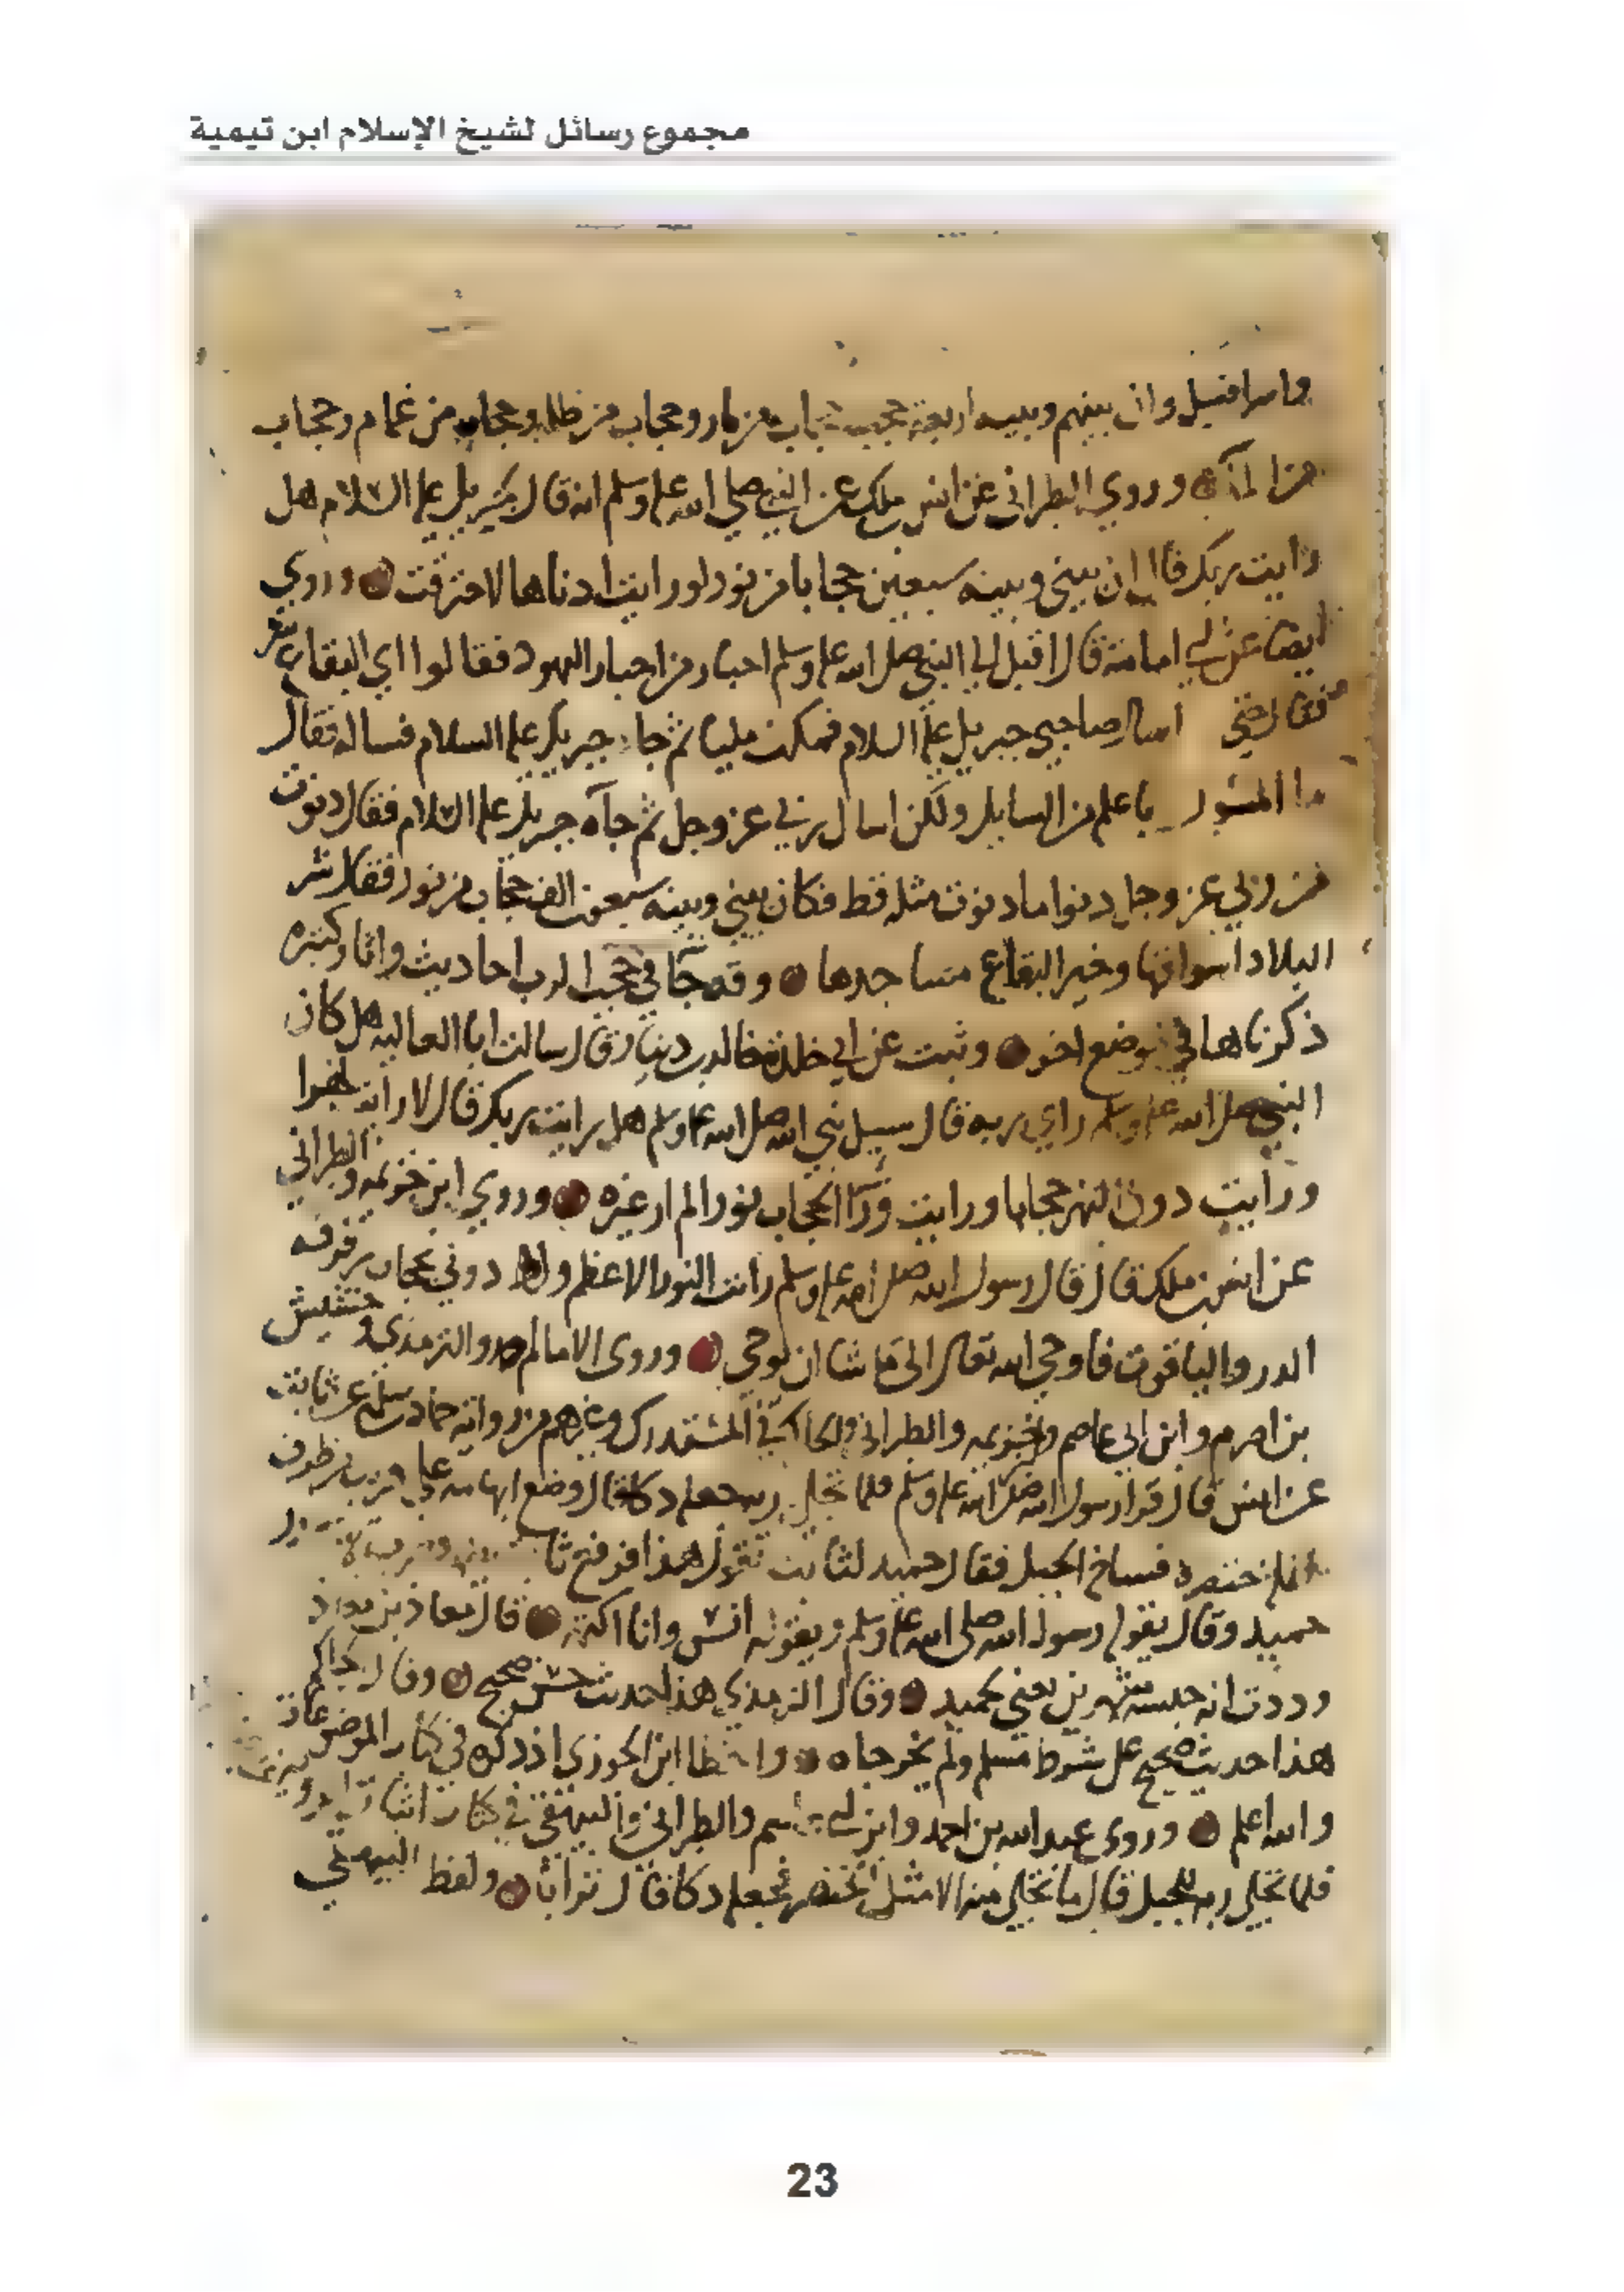 مجموع رسائل لشيخ الإسلام ابن تيمية
واسرافيل وان بينهم وبينه اربعة حجب حجاب من نار وحجاب من ظلمه وحجاب من غمام وحجاب
من الماء وروي الطبراني عن انس بن ملك عن النبي صلى الله عليه وسلم انه قال لجبريل عليه السلام هل
رايت ربك قال ان بيني وبينه سبعين حجابا من نور لو رايت ادناها لاحترقت وروي
ايضا عن ابي امامة قال اقبل الى النبي صلى الله عليه وسلم احبار من احبار اليهود فقالوا اي البقاع شر
فقال حتى اسال صاحبي جبريل عليه السلام فمكث مليا ثم جاء جبريل عليه السلام فساله فقال
ما المسؤول باعلم من السايل ولكن اسال ربي عز وجل ثم جآه جبريل عليه السلام فقال دنوت
من ربي عز وجل دنوا ما دنوت مثله قط فكان بيني وبينه سبعون الف حجاب من نور فقال شر
البلاد اسواقها وخير البقاع مساجدها وقد جآ في حجب الرب احاديث واثار كثيره
ذكرناها في موضع اخر وثبت عن ابي خلدة خالد بن دينار قال سالت ابا العاليه هل كان
النبي صلى الله عليه وسلم راي ربه قال سيل نبي الله صلى الله عليه وسلم هل رايت ربك قال لا رايت نهرا
ورايت دون النهر حجابا ورايت ورآ الحجاب نورا لم ار غيره وروي ابن خزيمه والطبراني
عن انس بن ملك قال قال رسول الله صلى الله عليه وسلم رايت النور الاعظم ولط دوني بحجاب رفرفه
الدر والياقوت فاوحي الله تعالى الي ما شا ان يوحي وروى الامام احمد والترمذي وخشيش
بن اصرم وابن ابي عاصم وابن خزيمه والطبراني والحاكم في المستدرك وغيرهم من رواية حماد بن سلمه عن ثابت
عن انس قال قرا رسول الله صلى الله عليه وسلم فلما تجلى ربه جعله دكا قال وضع ابهامه على قريب من طرف
انملة خنصره فساخ الجبل فقال حميد لثابت تقول هذا فرفع ثابت يده فضرب
حميد وقال يقوله رسول الله صلى الله عليه وسلم ويقوله انس وانا اكتمه قال معاذ بن معاذ
وددت انه حبسه شهرين يعني لحميد وقال الترمذي هذا حديث حسن صحيح وقال الحاكم
هذا حديث صحيح على شرط مسلم ولم يخرجاه واخطا ابن الجوزي اذ ذكره في كتاب الموضوعات
والله اعلم وروى عبد الله بن احمد وابن ابي عاصم والطبراني والبيهقي في كتاب اثبات الرويه
فلما تجلى ربه للجبل قال ما تجلى منه الا مثل الخنصر فجعله دكا قال ترابا ولفظ البيهقي
23